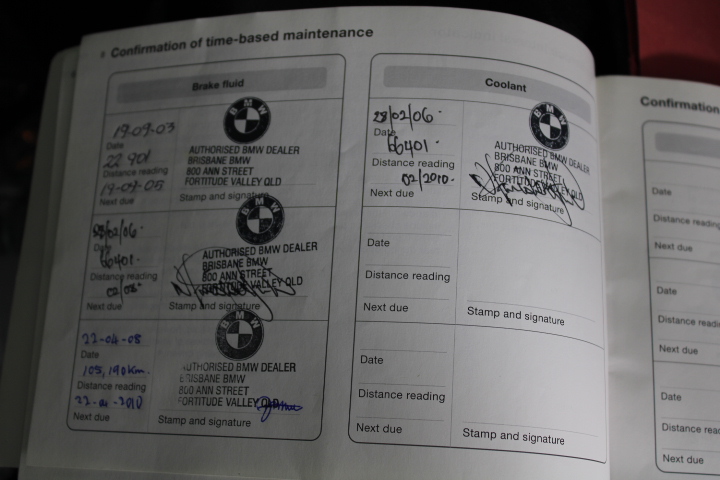 Confirmation of time-based maintenance
Brake fluid
19-09-03
Date
22 901
Distance reading
19-09-05
Next due
BMW
AUTHORISED BMW DEALER
BRISBANE BMW
800 ANN STREET
FORTITUDE VALLEY QLD
Stamp and signature
28/02/06.
Date
66401.
Distance reading
02/08.
Next due
BMW
AUTHORISED BMW DEALER
BRISBANE BMW
800 ANN STREET
FORTITUDE VALLEY QLD
Stamp and signature
22-04-08
Date
105,190km.
Distance reading
22-04-2010
Next due
BMW
AUTHORISED BMW DEALER
BRISBANE BMW
800 ANN STREET
FORTITUDE VALLEY QLD
Stamp and signature
Coolant
28/02/06.
Date
66401.
Distance reading
02/2010.
Next due
BMW
AUTHORISED BMW DEALER
BRISBANE BMW
800 ANN STREET
FORTITUDE VALLEY QLD
Stamp and signature
Date
Distance reading
Next due
Stamp and signature
Date
Distance reading
Next due
Stamp and signature
Confirmation
Date
Distance readi
Next due
Date
Distance readi
Next due
Date
Distance read
Next due